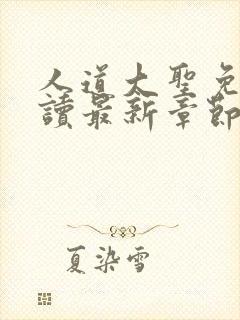 人道大聖免
讀最新章節
夏染雪